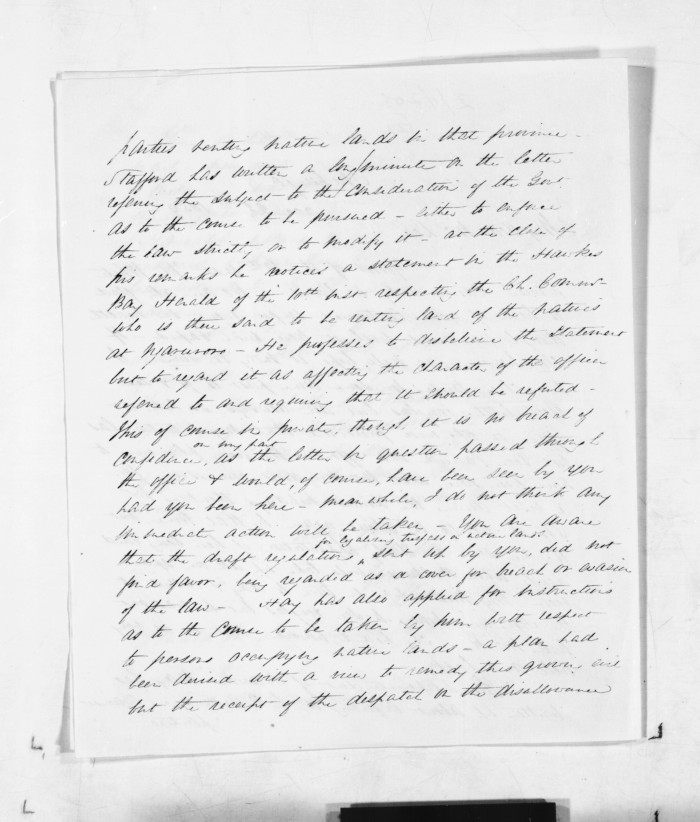 parties renting native lands in that province -
Stafford has written a long minute on the letter
refering the subject to the consideration of the Govt
as to the course to be pursued - either to enforce
the law strictly or to modify it - at the close of
his remarks he notices a statement in the Hawkes
Bay Herald of the 10th inst. respecting the Ch. Commr
who is there said to be renting land of the natives
at Ngaruroro - He professes to disbelieve the statement
but to regard it as affecting the character of the officer
refered to and requiring that it should be refuted -
This of course is private, though it is no breach of
on my part
confidence, as the letter in question passed through
the office & would, of course, have been seen by you
had you been here - meanwhile, I do not think any
immediate action will be taken - You are aware
for legalising trespass on native lands
that the draft regulations, sent up by you, did not
find favor, being regarded as a cover for breach or evasion
of the law - Hay has also applied for instructions
as to the course to be taken by him with respect
to persons occupying native lands - a plan had
been devised with a view to remedy this growing evil
but the receipt of the despatch on the disallowance